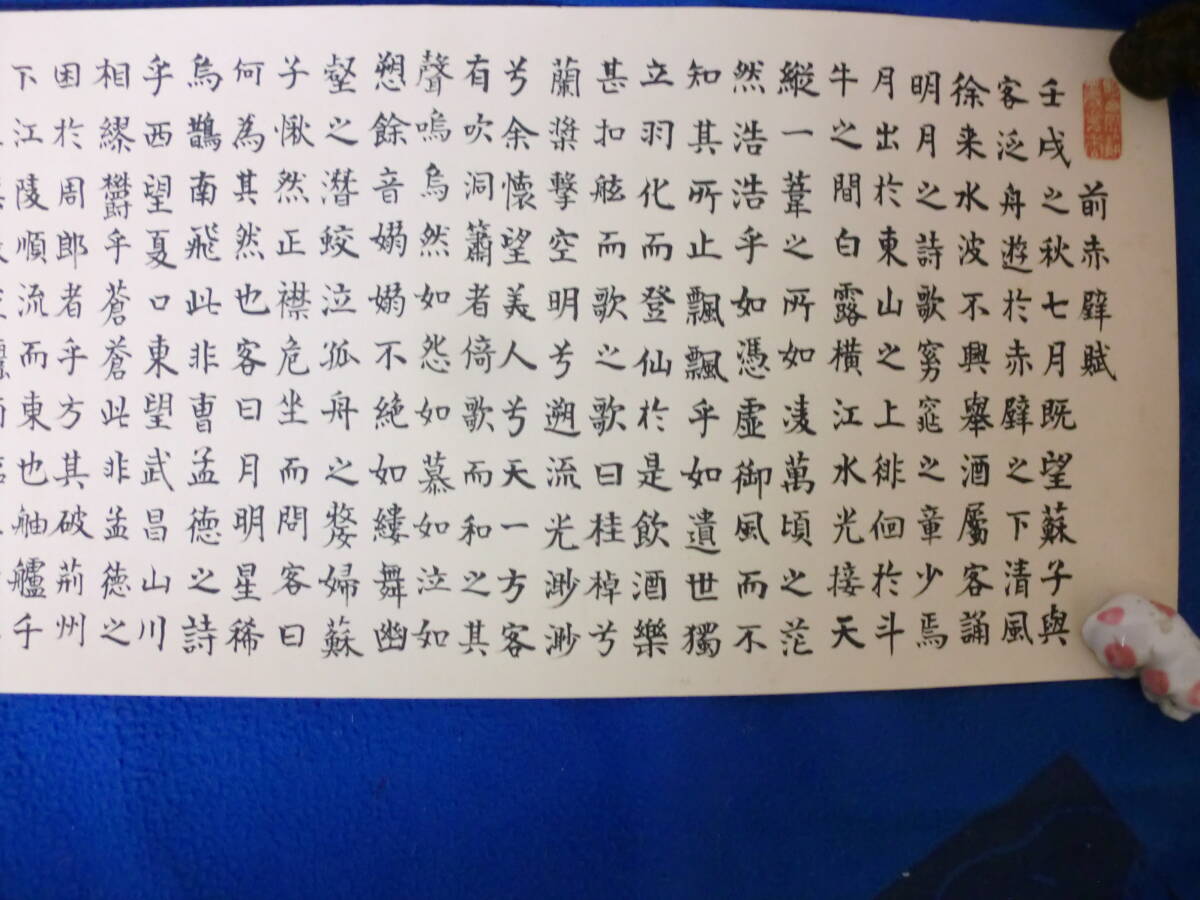 前赤壁賦
壬戌之秋七月既望蘇子與
客泛舟遊於赤壁之下清風
徐来水波不興舉酒屬客誦
明月之詩歌窈窕之章少焉
月出於東山之上徘徊於斗
牛之間白露橫江水光接天
縱一葦之所如凌萬頃之茫
然浩浩乎如憑虛御風而不
知其所止飄飄乎如遺世獨
立羽化而登仙於是飲酒樂
甚扣舷而歌之歌曰桂棹兮
蘭槳擊空明兮遡流光渺渺
兮余懷望美人兮天一方客
有吹洞簫者倚歌而和之其
聲嗚烏然如怨如慕如泣如
愬餘音嫋嫋不絶如縷舞幽
壑之潛蛟泣孤舟之嫠婦蘇
子愀然正襟危坐而問客曰
何為其然也客曰月明星稀
烏鵲南飛此非曹孟德之詩
乎西望夏口東望武昌山川
相繆鬱乎蒼蒼此非孟德之
困於周郎者乎方其破荊州
下江陵順流而東也舳艫千